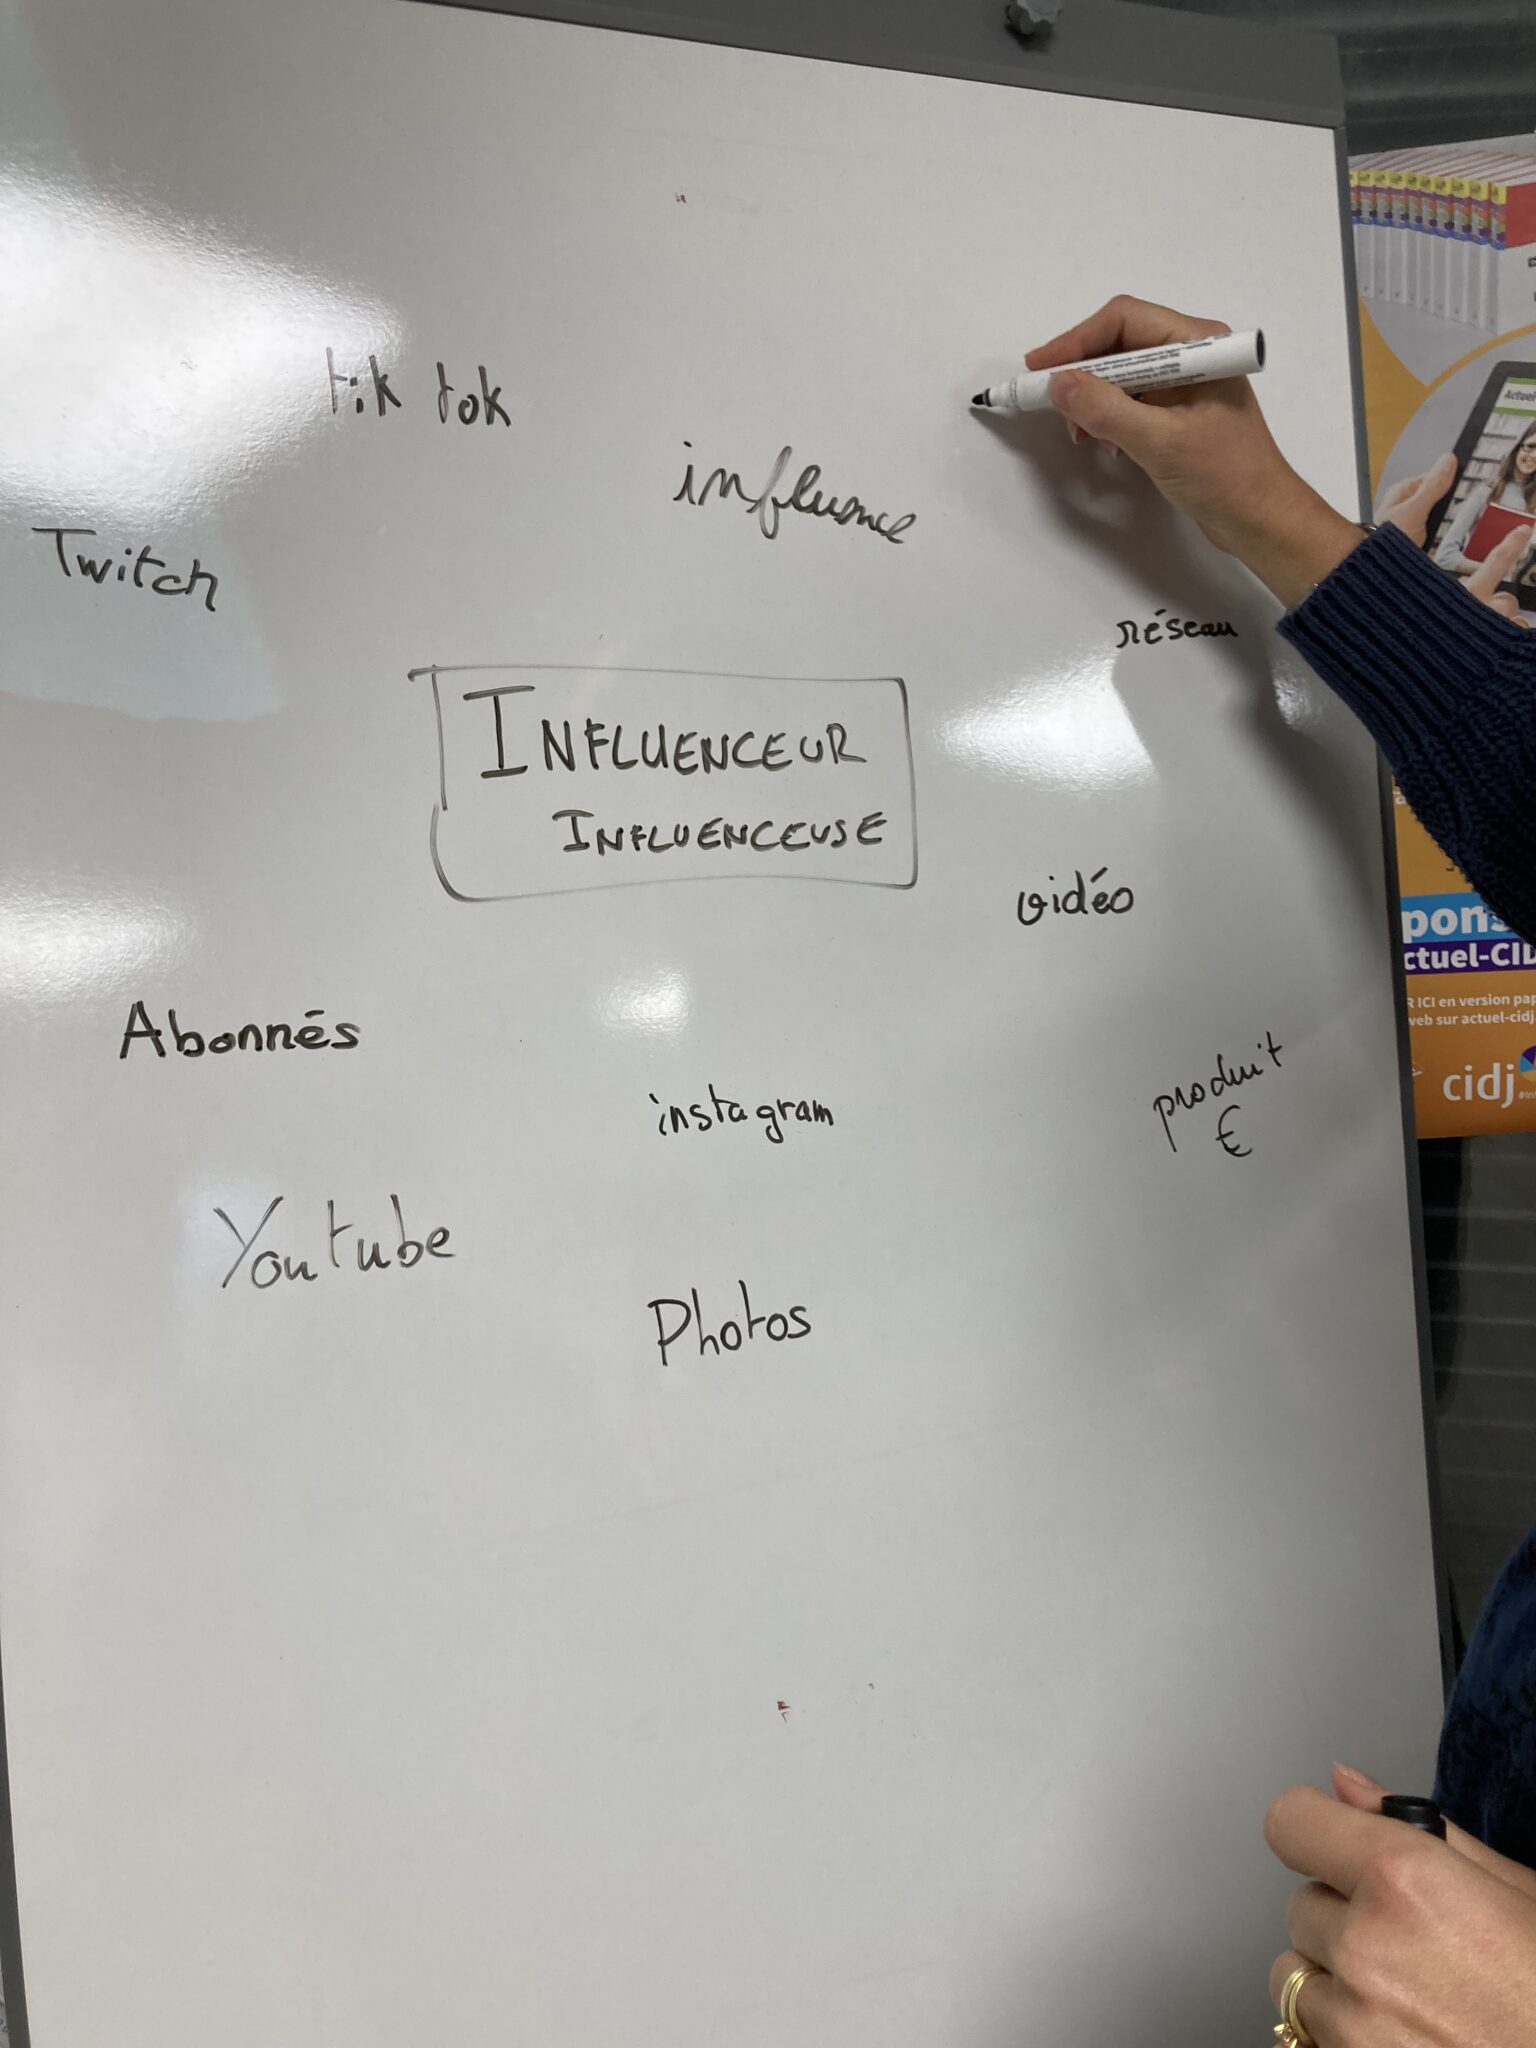 tik tok
influence
Twitch
réseau
INFLUENCEUR
INFLUENCEUSE
vidéo
Abonnés
instagram
produit
€
Youtube
Photos
Actuel
pons
ctuel-CID
R ICI en version pap
web sur actuel-cidj
cidj